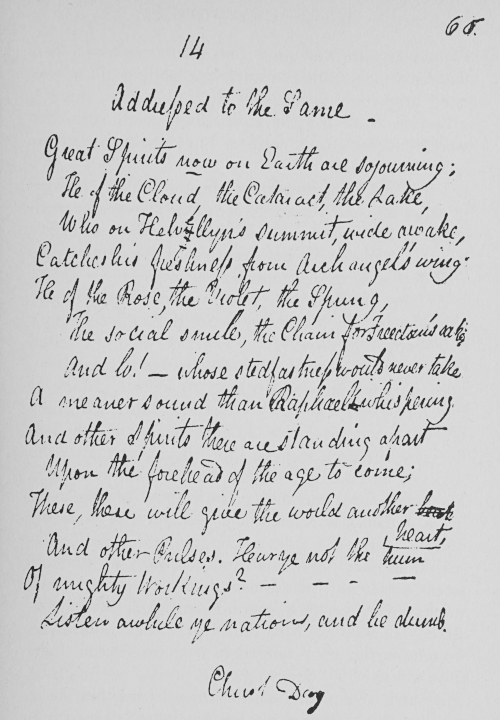 68.
14
Addressed to the Same
Great Spirits now on Earth are sojourning;
He of the Cloud, the Cataract, the Lake,
Who on Helvellyn's summit, wide awake,
Catches his freshness from Archangel's wing:
He of the Rose, the Violet, the Spring,
The social smile, the Chain for Freedom's sake;
And lo! — whose stedfastness would never take
A meaner sound than Raphael's whispering.
And other Spirits there are standing apart
Upon the forehead of the age to come;
These, these will give the world another
heart,
And other Pulses. Hear ye not the hum
Of mighty Workings? — - - —
Listen awhile ye nations, and be dumb.
Christ Day